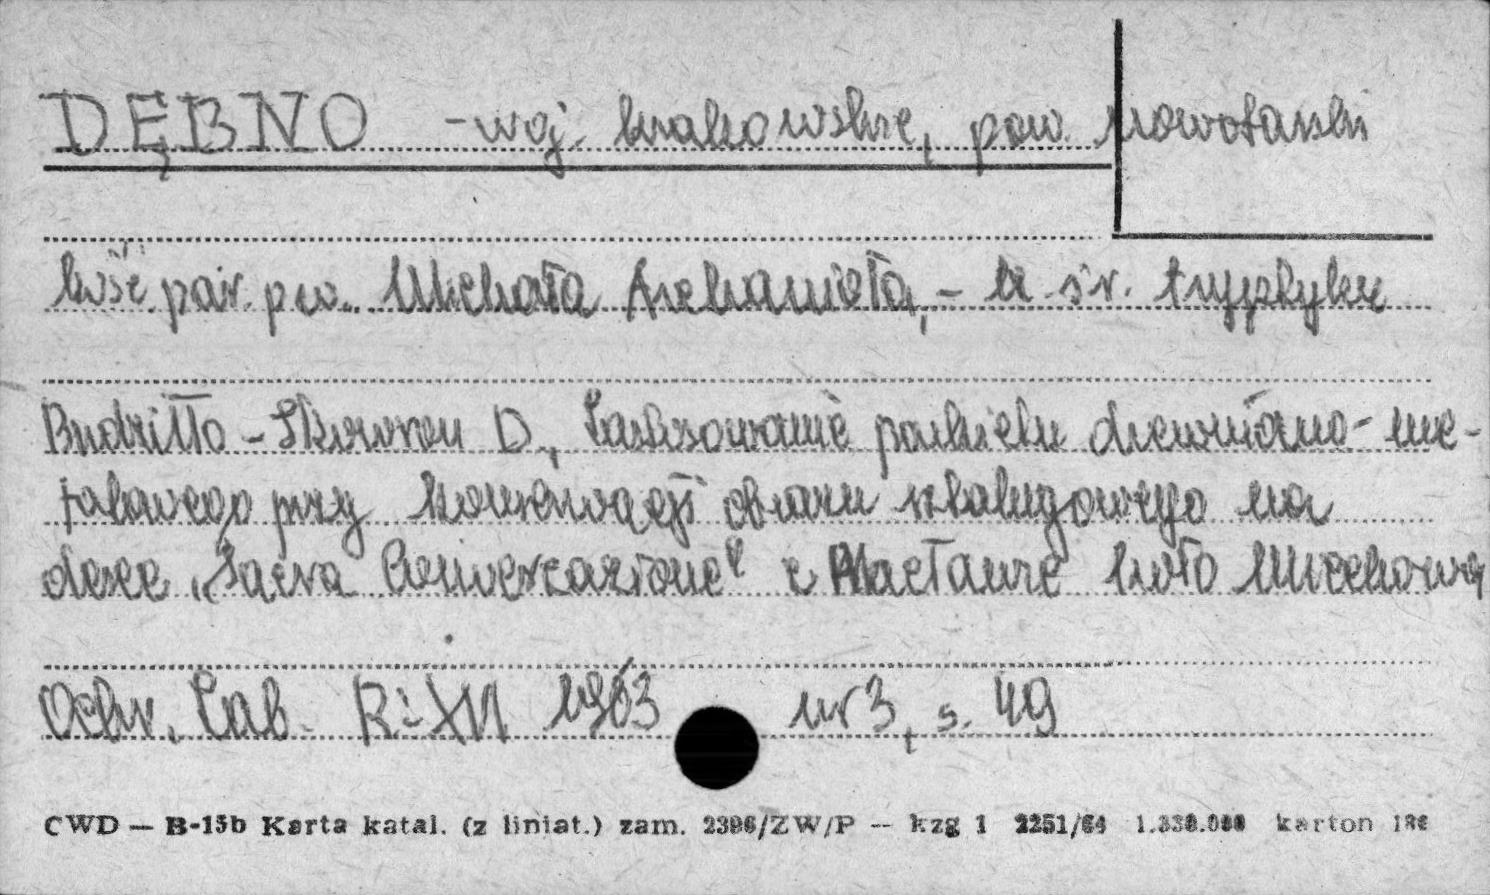 DĘBNO - woj. krakowskie, pow. nowotarski
kość. par. pw. Michała Archanioła, - śr. tryptyku
Budziłło-Skowron D., Zastosowanie parkietu drewniano-me-
talowego przy konserwacji obrazu sztalugowego na
desce „Sacra Conversazione" z Racławic koło Miechowa
Ochr. Zab. R. XVI 1963 nr 3, s. 49
CWD — B-15b Karta katal. (z liniat.) zam. 2396/ZW/P — kzg 1 2251/64 karton